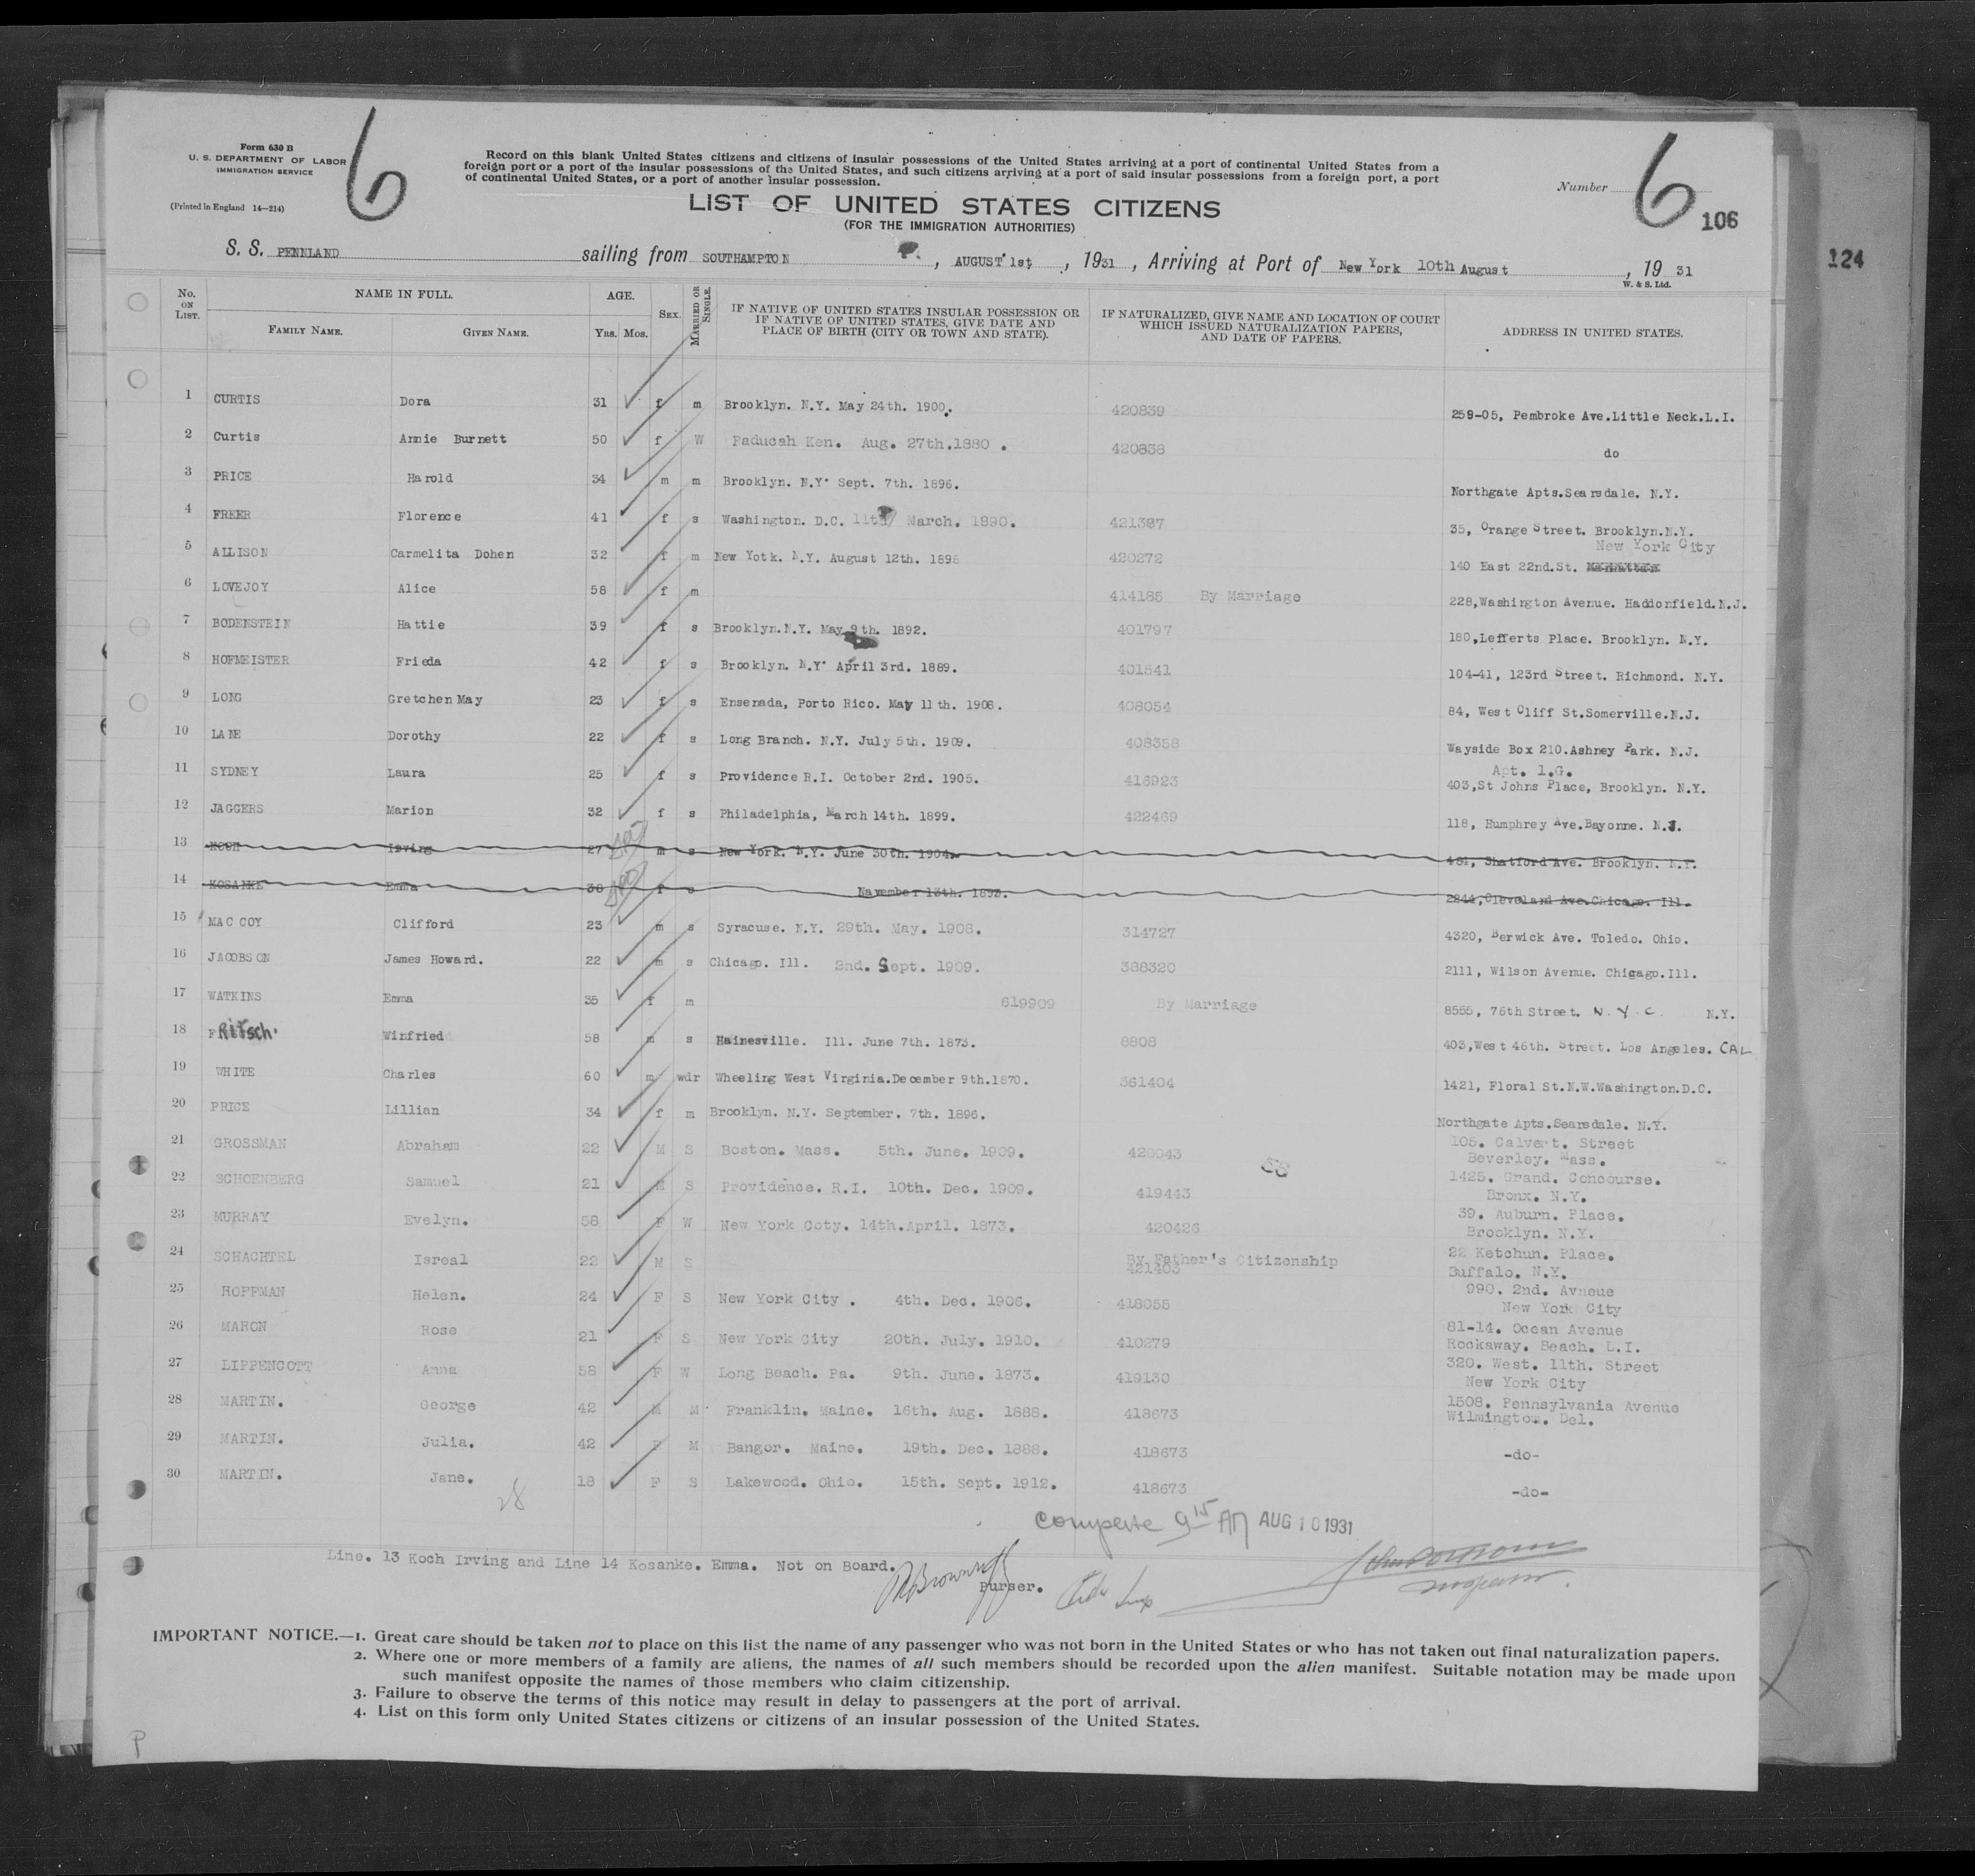 Form 630 B
U. S. DEPARTMENT OF LABOR
IMMIGRATION SERVICE
(Printed in England 14—214)
6
Record on this blank United States citizens and citizens of insular possessions of the United States arriving at a port of continental United States from a
foreign port or a port of the insular possessions of the United States, and such citizens arriving at a port of said insular possessions from a foreign port, a port
of continental United States, or a port of another insular possession.
Number 6
106
124
LIST OF UNITED STATES CITIZENS
(FOR THE IMMIGRATION AUTHORITIES)
S. S. PENNLAND sailing from SOUTHAMPTON, AUGUST 1st, 1931, Arriving at Port of New York 10th August, 19 31
W. & S. Ltd.
No. ON LIST. NAME IN FULL. FAMILY NAME. GIVEN NAME. AGE. Yrs. Mos. SEX. MARRIED OR SINGLE. IF NATIVE OF UNITED STATES INSULAR POSSESSION OR IF NATIVE OF UNITED STATES, GIVE DATE AND PLACE OF BIRTH (CITY OR TOWN AND STATE). IF NATURALIZED, GIVE NAME AND LOCATION OF COURT WHICH ISSUED NATURALIZATION PAPERS, AND DATE OF PAPERS. ADDRESS IN UNITED STATES.
1 CURTIS Dora 31 f m Brooklyn. N.Y. May 24th. 1900. 420839 259-05, Pembroke Ave.Little Neck.L.I.
2 Curtis Annie Burnett 50 f W Paducah Ken. Aug. 27th.1880 . 420838 do
3 PRICE Harold 34 m m Brooklyn. N.Y. Sept. 7th. 1896. Northgate Apts.Searsdale. N.Y.
4 FREER Florence 41 f s Washington. D.C. 11th March. 1890. 421387 35, Orange Street. Brooklyn.N.Y.
5 ALLISON Carmelita Dohen 32 f m New Yotk. N.Y. August 12th. 1898 420272 140 East 22nd.St. New York City
6 LOVEJOY Alice 58 f m 414185 By Marriage 228,Washington Avenue. Haddonfield.N.J.
7 BODENSTEIN Hattie 39 f s Brooklyn.N.Y. May 9th. 1892. 401797 180,Lefferts Place. Brooklyn. N.Y.
8 HOFMEISTER Frieda 42 f s Brooklyn. N.Y. April 3rd. 1889. 401541 104-41, 123rd Street. Richmond. N.Y.
9 LONG Gretchen May 23 f s Ensenada, Porto Rico. May 11th. 1908. 408054 84, West Cliff St.Somerville.N.J.
10 LANE Dorothy 22 f s Long Branch. N.Y. July 5th. 1909. 408358 Wayside Box 210.Ashney Park. N.J.
11 SYDNEY Laura 25 f s Providence R.I. October 2nd. 1905. 416923 Apt. 1.G. 403,St Johns Place, Brooklyn. N.Y.
12 JAGGERS Marion 32 f s Philadelphia, March 14th. 1899. 422469 118, Humphrey Ave.Bayonne. N.J.
13 KOCH Irving 27 m s New York. N.Y. June 30th. 1904. 481, Shatford Ave. Brooklyn. N.Y.
14 KOSANKE Emma 38 f s November 13th. 1893. 2844,Cleveland Ave.Chicago. Ill.
15 MAC COY Clifford 23 m s Syracuse. N.Y. 29th. May. 1908. 314727 4320, Berwick Ave. Toledo. Ohio.
16 JACOBSON James Howard. 22 m s Chicago. Ill. 2nd. Sept. 1909. 388320 2111, Wilson Avenue. Chicago.Ill.
17 WATKINS Emma 35 f m 619909 By Marriage 8555, 76th Street. N.Y.C. N.Y.
18 FRitsch. Winfried 58 m s Hainesville. Ill. June 7th. 1873. 8808 403,West 46th. Street. Los Angeles. CAL
19 WHITE Charles 60 m wdr Wheeling West Virginia.December 9th.1870. 361404 1421, Floral St.N.W.Washington.D.C.
20 PRICE Lillian 34 f m Brooklyn. N.Y. September. 7th. 1896. Northgate Apts.Searsdale. N.Y.
21 GROSSMAN Abraham 22 M S Boston. Mass. 5th. June. 1909. 420043 105. Calvert. Street Beverley. Mass.
22 SCHOENBERG Samuel 21 M S Providence. R.I. 10th. Dec. 1909. 419443 1425. Grand. Concourse. Bronx. N.Y.
23 MURRAY Evelyn. 58 F W New York Coty. 14th.April. 1873. 420426 39. Auburn. Place. Brooklyn. N.Y.
24 SCHACHTEL Isreal 22 M S By Father's Citizenship 421403 22 Ketchun. Place. Buffalo. N.Y.
25 HOFFMAN Helen. 24 F S New York City . 4th. Dec. 1906. 418055 990. 2nd. Avneue New York City
26 MARON Rose 21 F S New York City 20th. July. 1910. 410279 81-14. Ocean Avenue Rockaway. Beach. L.I.
27 LIPPENCOTT Anna 58 F W Long Beach. Pa. 9th. June. 1873. 419130 320. West. 11th. Street New York City
28 MARTIN. George 42 M M Franklin. Maine. 16th. Aug. 1888. 418673 1508. Pennsylvania Avenue Wilmington. Del.
29 MARTIN. Julia. 42 F M Bangor. Maine. 19th. Dec. 1888. 418673 -do-
30 MARTIN. Jane. 18 F S Lakewood. Ohio. 15th. Sept. 1912. 418673 -do-
28
Complete 9 15 AM AUG 10 1931
Line. 13 Koch Irving and Line 14 Kosanke. Emma. Not on Board.
Purser.
IMPORTANT NOTICE.—1. Great care should be taken not to place on this list the name of any passenger who was not born in the United States or who has not taken out final naturalization papers.
2. Where one or more members of a family are aliens, the names of all such members should be recorded upon the alien manifest. Suitable notation may be made upon
such manifest opposite the names of those members who claim citizenship.
3. Failure to observe the terms of this notice may result in delay to passengers at the port of arrival.
4. List on this form only United States citizens or citizens of an insular possession of the United States.
P